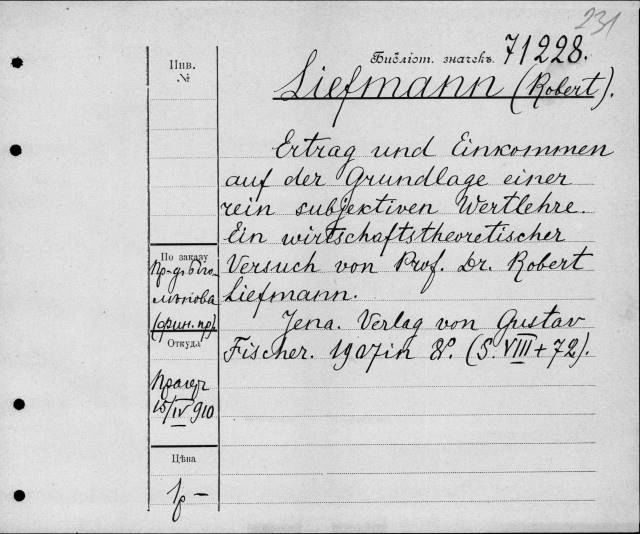 231
Библіот. значекъ 71228.
Инв.
№
Liefmann (Robert).
Ertrag und Einkommen
auf der Grundlage einer
rein subjektiven Wertlehre.
Ein wirtschaftstheoretischer
Versuch von Prof. Dr. Robert
Liefmann.
Jena. Verlag von Gustav
Fischer. 1907 in 8º. (S. VIII + 72).
По заказу
(фин. пр).
Откуда
15/IV 910
Цѣна
1р –